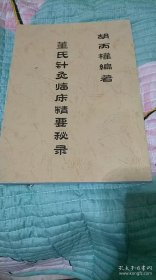 胡丙權編著
董氏针灸临床精要秘录